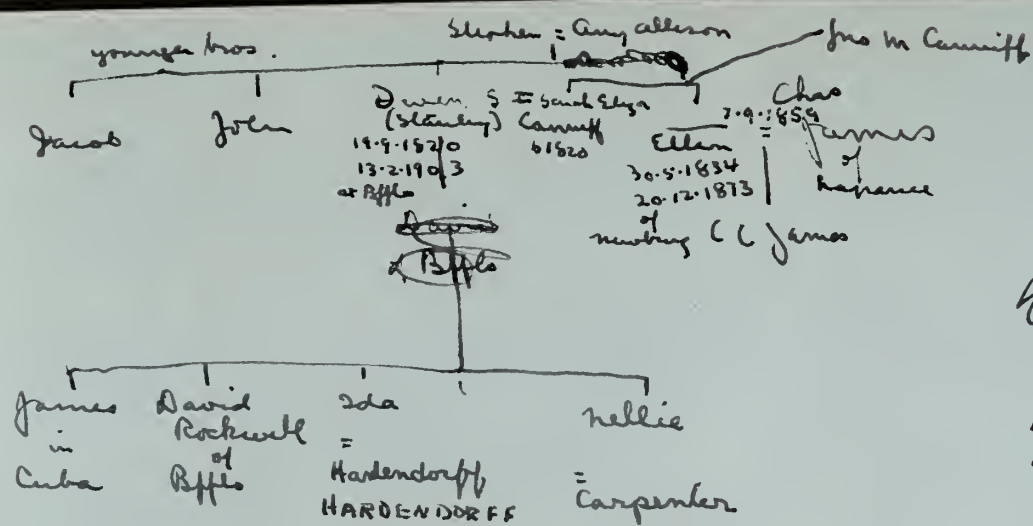 younger bros.
Stephen = Amy Allison
Jno M Canniff
Jacob
John
Owen S = Sarah Eliza
(Stanley) Canniff
19.9.1820 b 1820
13.2.1903
at Bffls
Ellen
30.5.1834
20.12.1873
of
newburg
Chas
7.9.1859
=
James
of
napanee
C C James
of Bffls
James
in
Cuba
David
Rockwell
of
Bffls
Ida
=
Hardendorff
HARDENDORFF
nellie
=
Carpenter